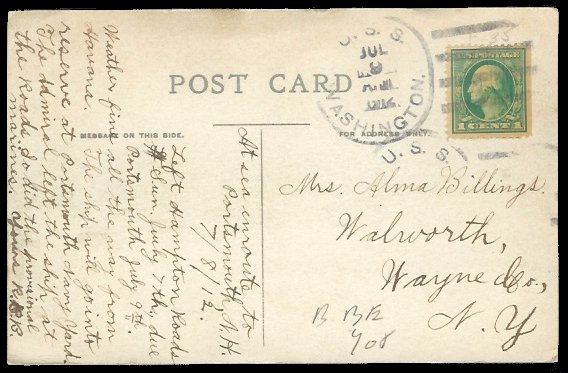 POST CARD
MESSAGE ON THIS SIDE.
FOR ADDRESS ONLY.
U. S. S.
JUL
8
WASHINGTON.
U. S. S.
U.S. POSTAGE
1 CENT 1
At sea enroute to
Portsmouth, N.H.
7/8/12.
Left Hampton Roads
Sun July 7th, due
Portsmouth July 9th.
Weather fine all the way from
Havana. The ship will go into
reserve at Portsmouth Navy Yard.
The Admiral left the ship at
the Roads. So did the provisional
marines. Yours
Mrs. Alma Billings.
Walworth,
Wayne Co.,
N. Y